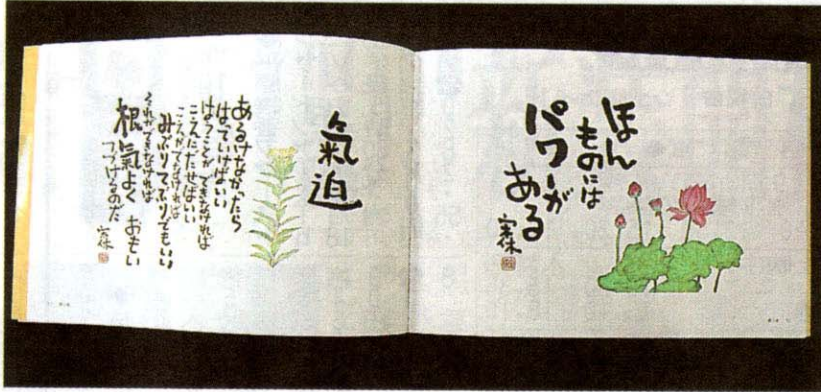 ほん
ものには
パワーが
ある
氣迫
あるけなかったら
はっていけばいい
はうことができなければ
こえにだせばいい
こえがでなければ
みぶりてぶりでもいい
それができなければ
根氣よくおもい
つづけるのだ